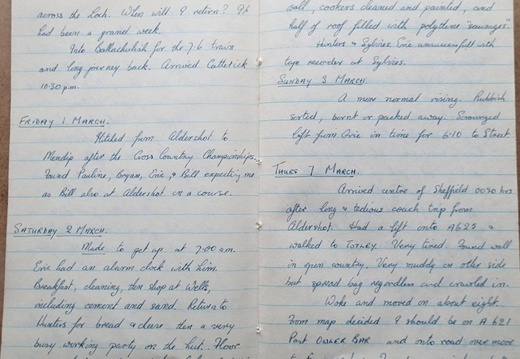 across the Loch. When will I return? It
had been a grand week.
Into Ballachulish for the 7.6 train
and long journey back. Arrived Catterick
10.30 p.m.
FRIDAY 1 MARCH.
Hitched from Aldershot to
Mendip after the Cross Country Championships.
Found Pauline, Bryan, Eric, & Bill expecting me
as Bill also at Aldershot on a course.
SATURDAY 2 MARCH.
Made to get up at 7.00 a.m.
Eric had an alarm clock with him.
Breakfast, cleaning, then shop at Wells,
including cement and sand. Return to
Hunters for bread & cheese then a very
busy working party on the hut. Floor
wall, cookers cleaned and painted, and
half of roof filled with polythene "sausages".
Hunters & Sylvias. Eric unsuccessful with
tape recorder at Sylvias.
SUNDAY 3 MARCH.
A more normal rising. Rubbish
sorted, burnt or packed away. Scrounged
lift from Eric in time for 6.10 to Street
THURS 7 MARCH.
Arrived centre of Sheffield 0040 hrs
after long & tedious coach trip from
Aldershot. Had a lift onto A625 &
walked to TOTLEY. Very tired. Found wall
in open country. Very muddy on other side
but spread bag regardless and crawled in.
Woke and moved on about eight.
From map decided I should be on A 621
Past OWLER BAR and onto road over moor